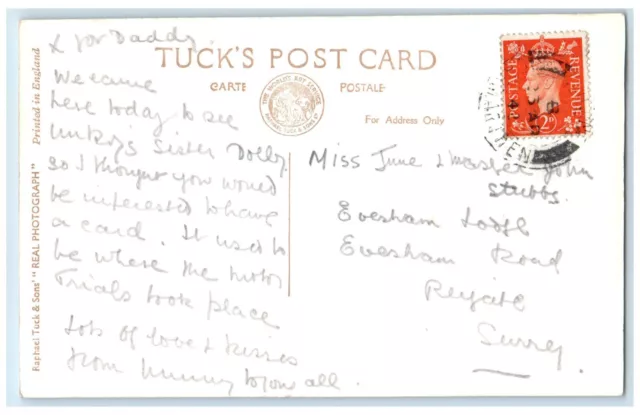 X for Daddy.
We came
here today to see
Unkoy's Sister Dolly
so I thought you would
be interested to have
a card. It used to
be where the Motor
Trials took place
Lots of love & kisses
from Mummy to you all.
TUCK'S POST CARD
CARTE POSTALE
For Address Only
Miss June & Master John
Stubbs.
Evesham Lodge
Evesham Road
Reigate
Surrey
POSTAGE REVENUE
Raphael Tuck & Sons' "REAL PHOTOGRAPH"
Printed in England